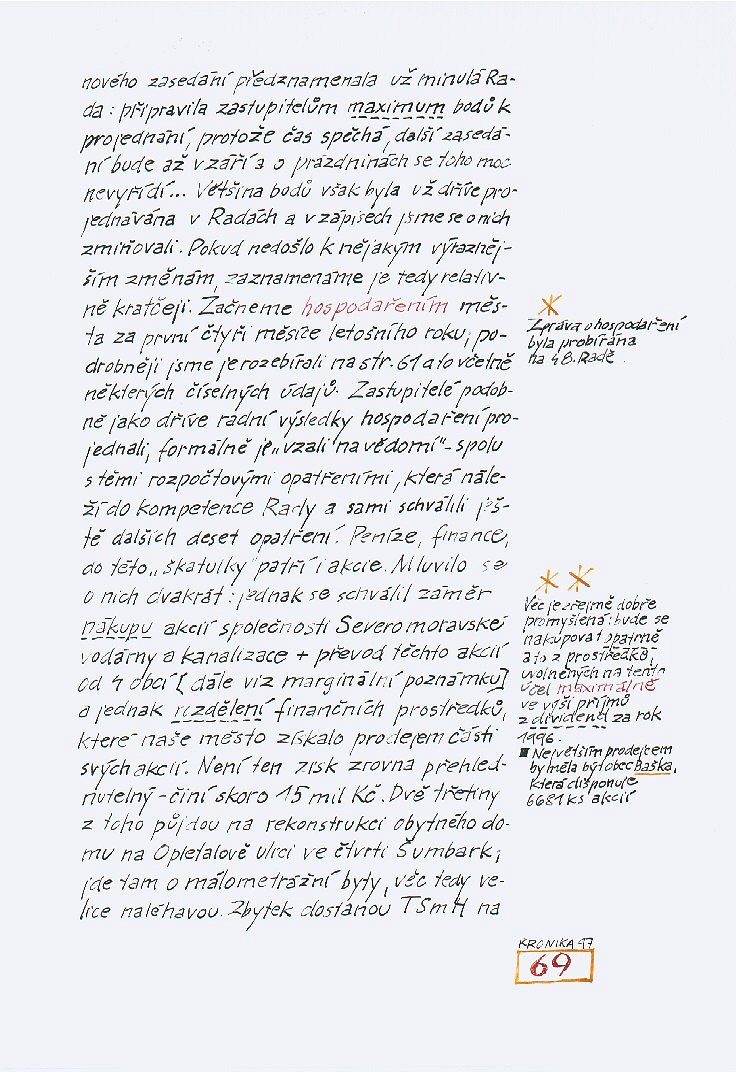 nového zasedání předznamenala už minulá Ra-
da: připravila zastupitelům maximum bodů k
projednání, protože čas spěchá, další zasedá-
ní bude až v září a o prázdninách se toho moc
nevyřídí... Většina bodů však byla už dříve pro-
jednávána v Radách a v zápisech jsme se o nich
zmiňovali. Pokud nedošlo k nějakým výrazněj-
ším změnám, zaznamenáme je tedy relativ-
ně kratčeji. Začneme hospodařením měs-
ta za první čtyři měsíce letošního roku; po-
drobněji jsme je rozebírali na str. 61 a to včetně
některých číselných údajů. Zastupitelé podob-
ně jako dříve radní výsledky hospodaření pro-
jednali, formálně je „vzali na vědomí" - spolu
s těmi rozpočtovými opatřeními, která nále-
ží do kompetence Rady a sami schválili ješ-
tě dalších deset opatření. Peníze, finance,
do této „škatulky" patří i akcie. Mluvilo se
o nich dvakrát: jednak se schválil záměr
nákupu akcií společnosti Severomoravské
vodárny a kanalizace + převod těchto akcií
od 4 obcí [dále viz marginální poznámku]
a jednak rozdělení finančních prostředků,
které naše město získalo prodejem části
svých akcií. Není ten zisk zrovna přehled-
nutelný - činí skoro 15 mil Kč. Dvě třetiny
z toho půjdou na rekonstrukci obytného do-
mu na Opletalově ulici ve čtvrti Šumbark;
jde tam o málometrážní byty, věc tedy ve-
lice naléhavou. Zbytek dostanou TSmH na
Zpráva o hospodaření
byla probírána
na 48. Radě.
Věc je zřejmě dobře
promyšlená: bude se
nakupovat opatrně
a to z prostředků
uvolněných na tento
účel maximálně
ve výši příjmů
z dividend za rok
1996.
■ Největším prodejcem
by měla být obec Baška,
která disponuje
6681 ks akcií
KRONIKA 97
69